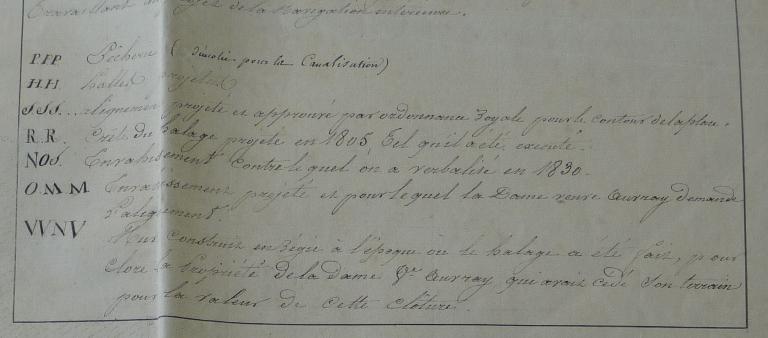 Travaillant au Projet de la Navigation intérieure.
P.P.P. Pêcherie (démolie pour la Canalisation)
H.H. halles projetées
S.S.S... alignement projeté et approuvé par ordonnance Royale pour le contour de la place.
R.R. Crête du halage projeté en 1805, Tel qu'il a été exécuté.
NOS. Envahissement contre lequel on a verbalisé en 1830.
O.M.M Envahissement projeté et pour lequel la Dame veuve Auvray demande
l'alignement.
VVNV Mur construit en Régie à l'époque où le halage a été fait, pour
clore la propriété de la Dame Ve. Auvray qui avait cédé son terrain
pour la valeur de cette clôture.